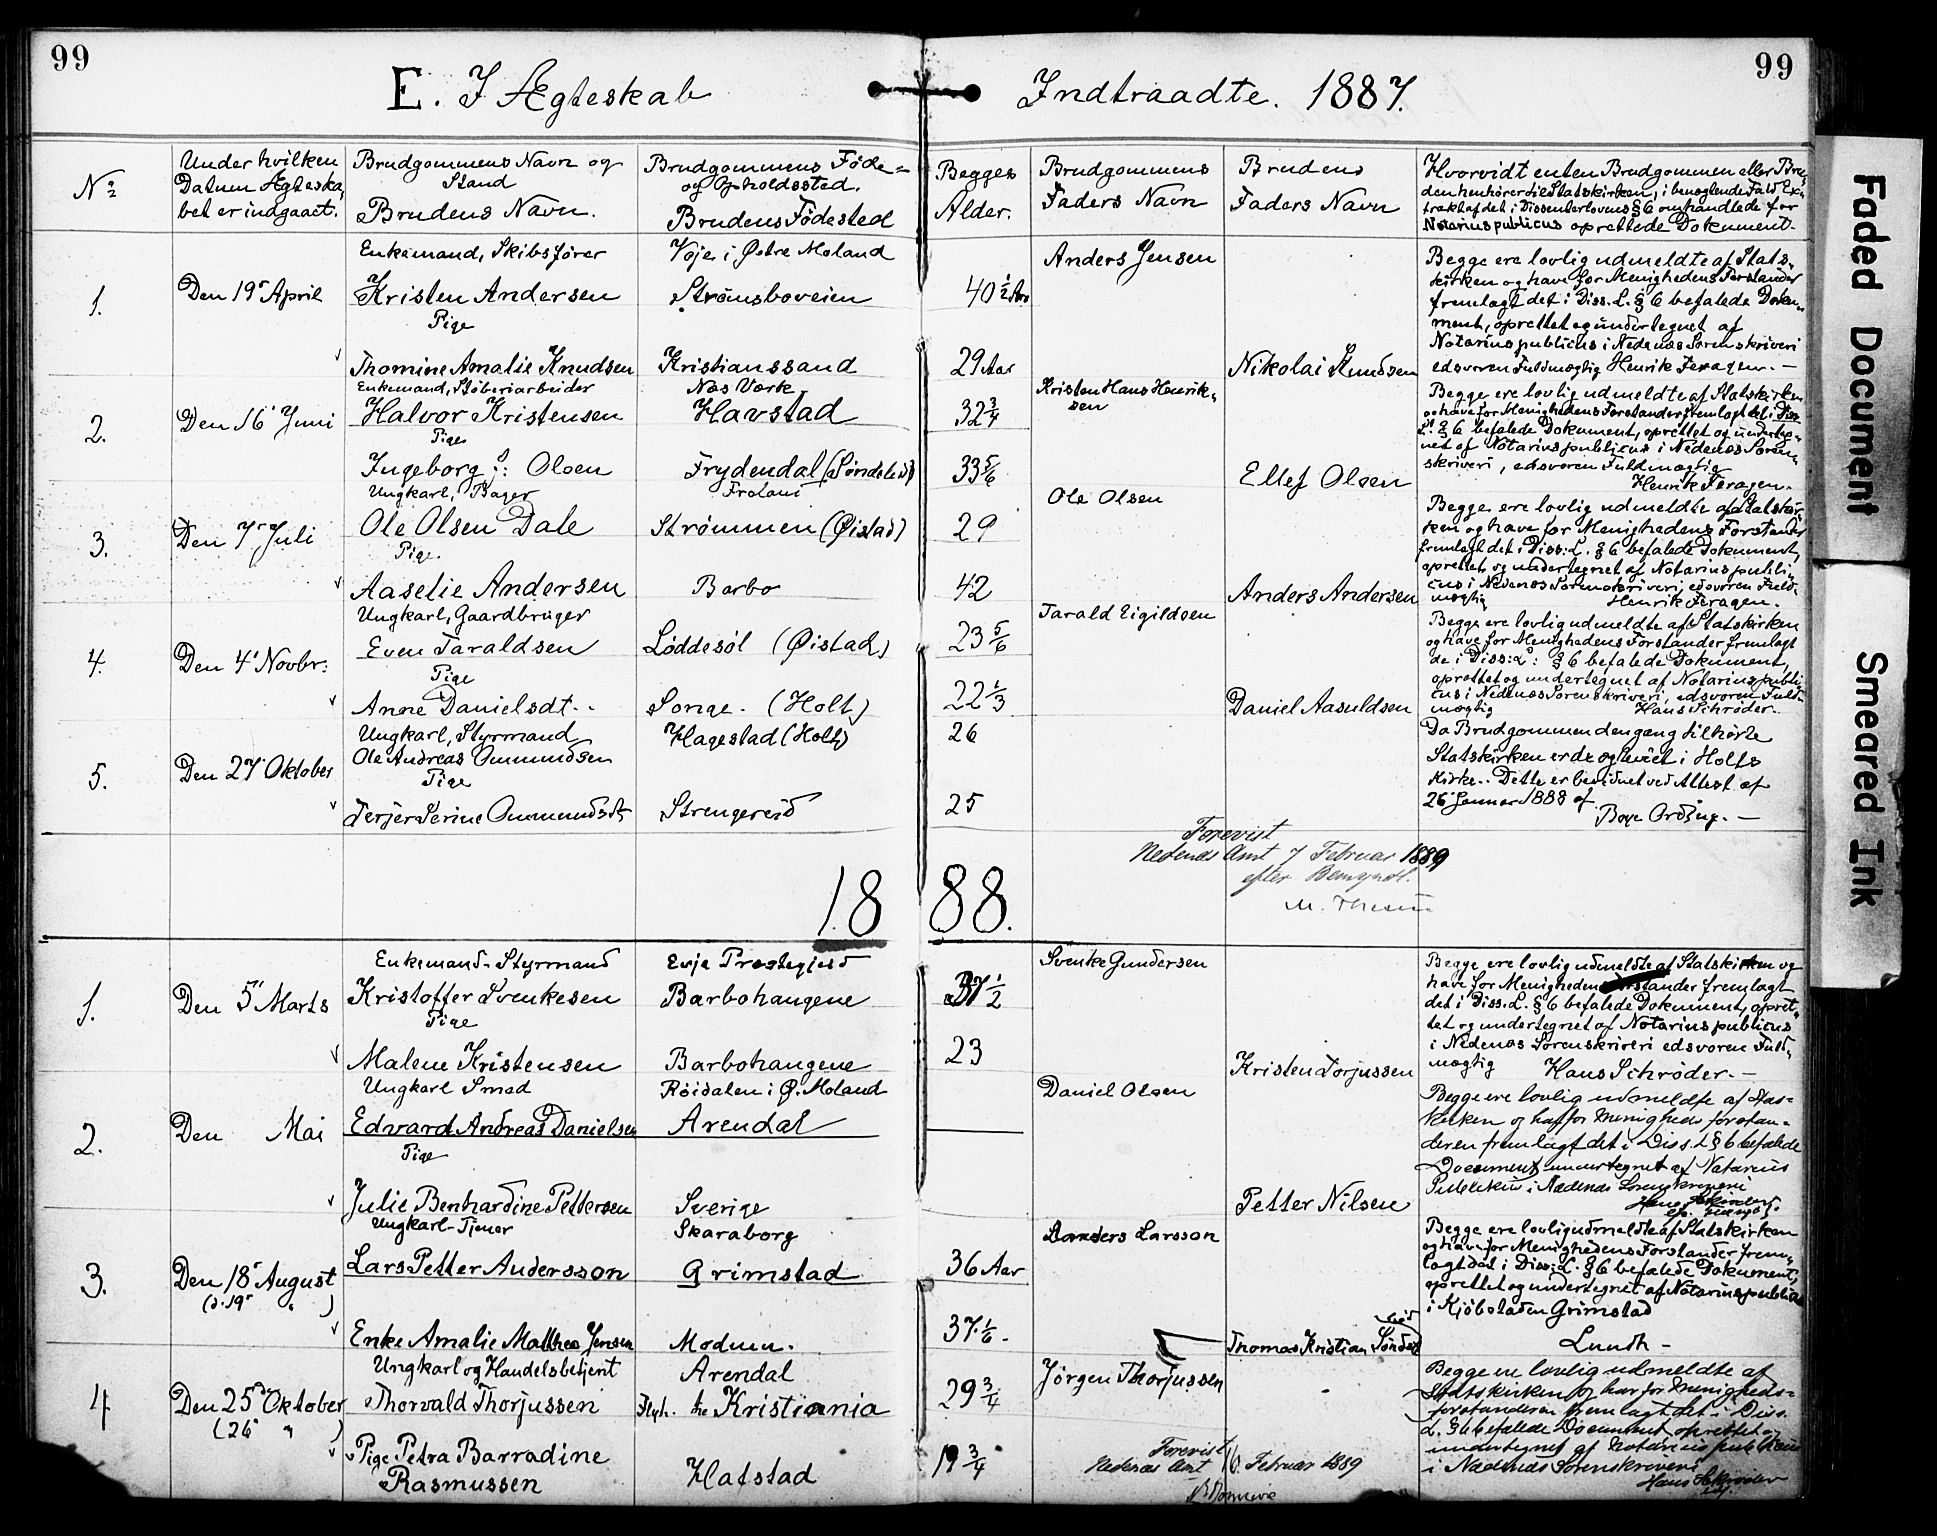 99
99
E. I Ægteskab Indtraadte. 1887.
No
Under hvilken
Datum Ægteska,
bet er indgaaet.
Brudgommens Navn og
Stand
Brudens Navn.
Brudgommens Føde=
og Opholdssted.
Brudens Födested
Begges
Alder.
Brudgommens
Faders Navn
Brudens
Faders Navn
Hvorvidt enten Brudgommen eller Bru,
den henhörer til Statskirken, i benægtende Fald Ex,
trakt af det i Dissenterlovens § 6 omhandlede for
Notarius publicus oprettede Dokument.
1.
Den 19' April
Enkemand, Skibsfører
Kristen Andersen
Pige
Thomine Amalie Knudsen
Voje i Østre Moland
Strömsboveien
Kristianssand
40 1/2 Aar
29 Aar
Anders Jensen
Nikolai Knudsen
Begge ere lovlig udmeldte af Stats,
kirken og have for Menighedens Forstander
fremlagt det i Diss. L. § 6 befalede Doku,
ment, oprettet og undertegnet af
Notarius publicus i Nedenæs Sorenskriveri
edsvoren Fuldmægtig Henrik Feragen. —
2.
Den 16' Juni
Enkemand, Støberiarbeider
Halvor Kristensen
Pige
Ingeborg Olsen
Næs Værk
Havstad
Frydendal (Søndeled)
32 3/4
33 5/6
Kristen Hans Henrik,
sen
Ellef Olsen
Begge ere lovlig udmeldte af Statskirken
og have for Menighedens Forstander fremlagt det i Diss
L. § 6 befalede Dokument, oprettet og underteg,
net af Notarius publicus i Nedenæs Soren,
skriveri, edsvoren Fuldmægtig
Henrik Feragen.
3.
Den 7' Juli
Ungkarl, Bager
Ole Olsen Dale
Pige.
Aaselie Andersen
Froland
Strømmen (Øistad)
Barbo
29
42
Ole Olsen
Anders Andersen
Begge ere lovlig udmeldte af Statskir,
ken og have for Menighedens Forstander
fremlagt det i Diss: L. § 6 befalede Dokument,
oprettet og undertegnet af Notarius publi,
cus i Nedenæs Sorenskriveri, edsvoren Fuld,
mægtig Henrik Feragen.
4.
Den 4' Novbr:
Ungkarl, Gaardbruger
Even Taraldsen
Pige
Anne Danielsdt.
Løddesøl (Øistad)
Songe. (Holt)
23 5/6
22 1/3
Tarald Eigildsen
Daniel Aasuldsen
Begge ere lovlig udmeldte af Statskirken
og have for Menighedens Forstander fremlagt
de i Diss: L: § 6 befalede Dokument,
oprettet og undertegnet af Notarius publi,
cus i Nedenæs Sorenskriveri, edsvoren Fuld,
mægtig Hans Schrøder.
5.
Den 27' Oktober
Ungkarl, Styrmand
Ole Andreas Ommundsen
Pige
Terjer Serine Ommundsdt
Hagestad (Holt)
Strengereid
26
25
Da Brudgommen dengang tilhørte
Statskirken er de og viet i Holts
Kirke. Dette er bevidnet ved Attest af
26' Januar 1888 af
Boye Ording. —
Forevist
Nedenæs Amt 7 Februar 1889
efter Bemynd.
1888.
1.
Den 5' Marts
Enkemand - Styrmand
Kristoffer Svenkesen
Pige
Malene Kristensen
Evje Præstegjeld
Barbohaugene
Barbohaugene
37 1/2
23
Svenke Gundersen
Kristen Torjussen
Begge ere lovlig udmeldte af Statskirken og
have for Menighedens Forstander fremlagt
det i Diss. L. § 6 befalede Dokument, opret,
tet og undertegnet af Notarius publicus
i Nedenæs Sorenskriveri edsvoren Fuld,
mægtig Hans Schrøder. —
2.
Den Mai
Ungkarl Smed
Edvard Andreas Danielsen
Pige
Julie Benhardine Pettersen
Røidalen i Ø. Moland
Arendal
Sverige
Daniel Olsen
Petter Nilsen
Begge ere lovlig udmeldte af Stas=
kirken og haf for Menigheds forstan=
deren fremlagt det i Diss. L § 6 befalede
Document undertegnet af Notarius
Publikus i Nædenæs Sorenskriveri
Hans Schrøder
3.
Den 18' August
(d. 19' " )
Ungkarl - Tjener
Lars Petter Andersson
Enke Amalie Mathea Jensen
Skaraborg
Grimstad
Modum.
36 Aar
37 1/6.
Larsson
Thomas Kristian Sönde
led
Begge ere lovlig udmeldte af Statskirken
og have for Menighedens Forstander frem,
lagt det i Diss: L. § 6 befalede Dokument,
oprettet og undertegnet af Notarius publicus
i Kjöbstaden Grimstad
Lundh —
4
Den 25' Oktober
(26' " )
Ungkarl og Handelsbetjent
Thorvald Thorjussen
Pige Petra Barradine
Rasmussen
Arendal
Kristiania
Hafstad
29 3/4
19 3/4
Jørgen Thorjussen
Begge ere lovlig udmeldte af
Statskirken og har for Menigheds=
forstanderen fremlagt det i Diss.
L. § 6 befalede Document oprettet og
undertegnet af Notarius publikus
i Nædenæs Sorenskriveri
Hans Schrøder
Forevist
Nedenæs Amt Februar 1889
Faded Document
Smeared Ink